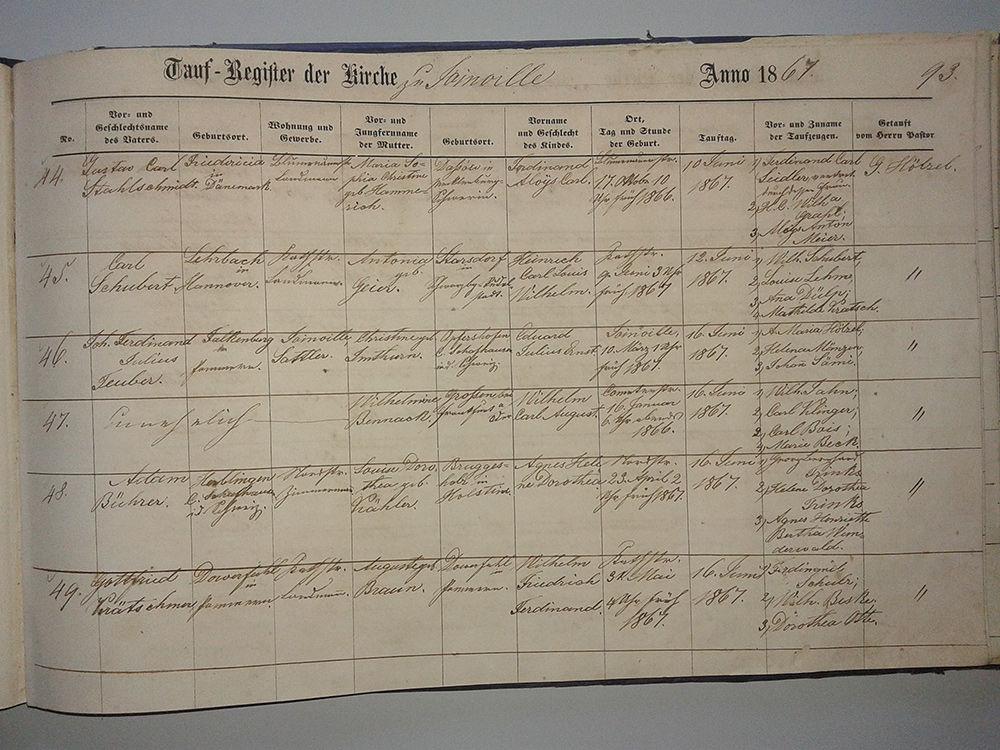 Tauf-Register der Kirche zu Joinville Anno 1867. 93.
No.
Vor- und
Geschlechtsname
des Vaters.
Geburtsort.
Wohnung und
Gewerbe.
Vor- und
Jungfernname
der Mutter.
Geburtsort.
Vorname
und Geschlecht
des Kindes.
Ort,
Tag und Stunde
der Geburt.
Tauftag.
Vor- und Zuname
der Taufzeugen.
Getauft
vom Herrn Pastor
44.
Gustav Carl
Stahlschmidt.
Friedericia
in
Dänemark.
Landmann
Maria So-
phia Christine
geb. Hamme-
rich.
Dassow in
Mecklenburg-
Schwerin.
Ferdinand
Aloÿs Carl.
17. Oktobr. 10
Uhr früh 1866.
10 Juni
1867.
1, Ferdinand Carl
Seidler,
2,
3, Aloÿs Anton
Meier.
G. Hölzel.
45.
Carl
Schubert
Lehrbach
in
Hannover.
Landmann.
Antonia
geb.
Geier.
Heinrich
Carl Louis
Wilhelm.
9. Juni 3 Uhr
früh 1867
12. Juni
1867.
1, Wilh. Schubert;
2, Louise Lehm;
3, Ana
4, Mathilde
"
46.
Joh. Ferdinand
Julius
Teuber.
Falkenburg
in
Pommern.
Joinville
Sattler.
Christine geb.
Imthurn.
Opfershofen
C. Schafhausen
i. d. Schweiz.
Eduard
Julius Ernst.
Joinville,
10. März, 1 Uhr
früh 1867.
16. Juni
1867.
1, A. Maria Hölzel;
2, Helena
3, Johan
"
47.
Unehelich
Wilhelmine
Bennack.
Wilhelm
Carl August.
16. Januar
6 Uhr abends
1866.
16. Juni
1867.
1, Wilh. Jahn;
2, Carl
2, Carl Bois;
4, Marie Beck.
"
48.
Adam
Bührer.
C. Schaffhausen
i. d. Schweiz.
Nordstr.
Zimmermann.
Louise Doro
thea geb.
Kähler.
Brügges-
holz in
Holstein.
Agnes Hele
ne Dorothea
Nordstr.
23. April 2
Uhr früh 1867.
16. Juni
1867.
1, Georg
Trinks
2, Helene Dorothea
Trinks
3, Agnes Henriette
Bertha Wun
derwald.
"
49.
Gottfried
Krätschmer,
Pommern.
Landmann.
Auguste geb.
Braun.
Pommern.
Wilhelm
Friedrich
Ferdinand.
3. Mai
4 Uhr früh
1867.
16. Juni
1867.
1, Ferdinand
2, Wilh. Beske.
3, Dorothea Otte.
"